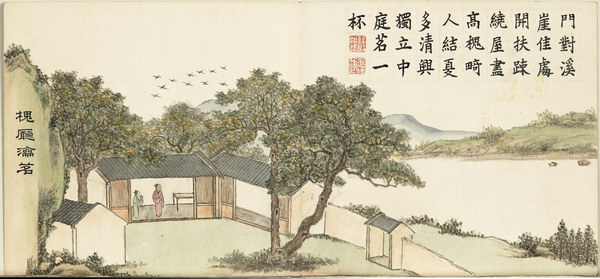 門對溪
崖佳處
開扶踈
繞屋盡
高槐畸
人結夏
多清興
獨立中
庭茗一
杯
槐廳瀹茗